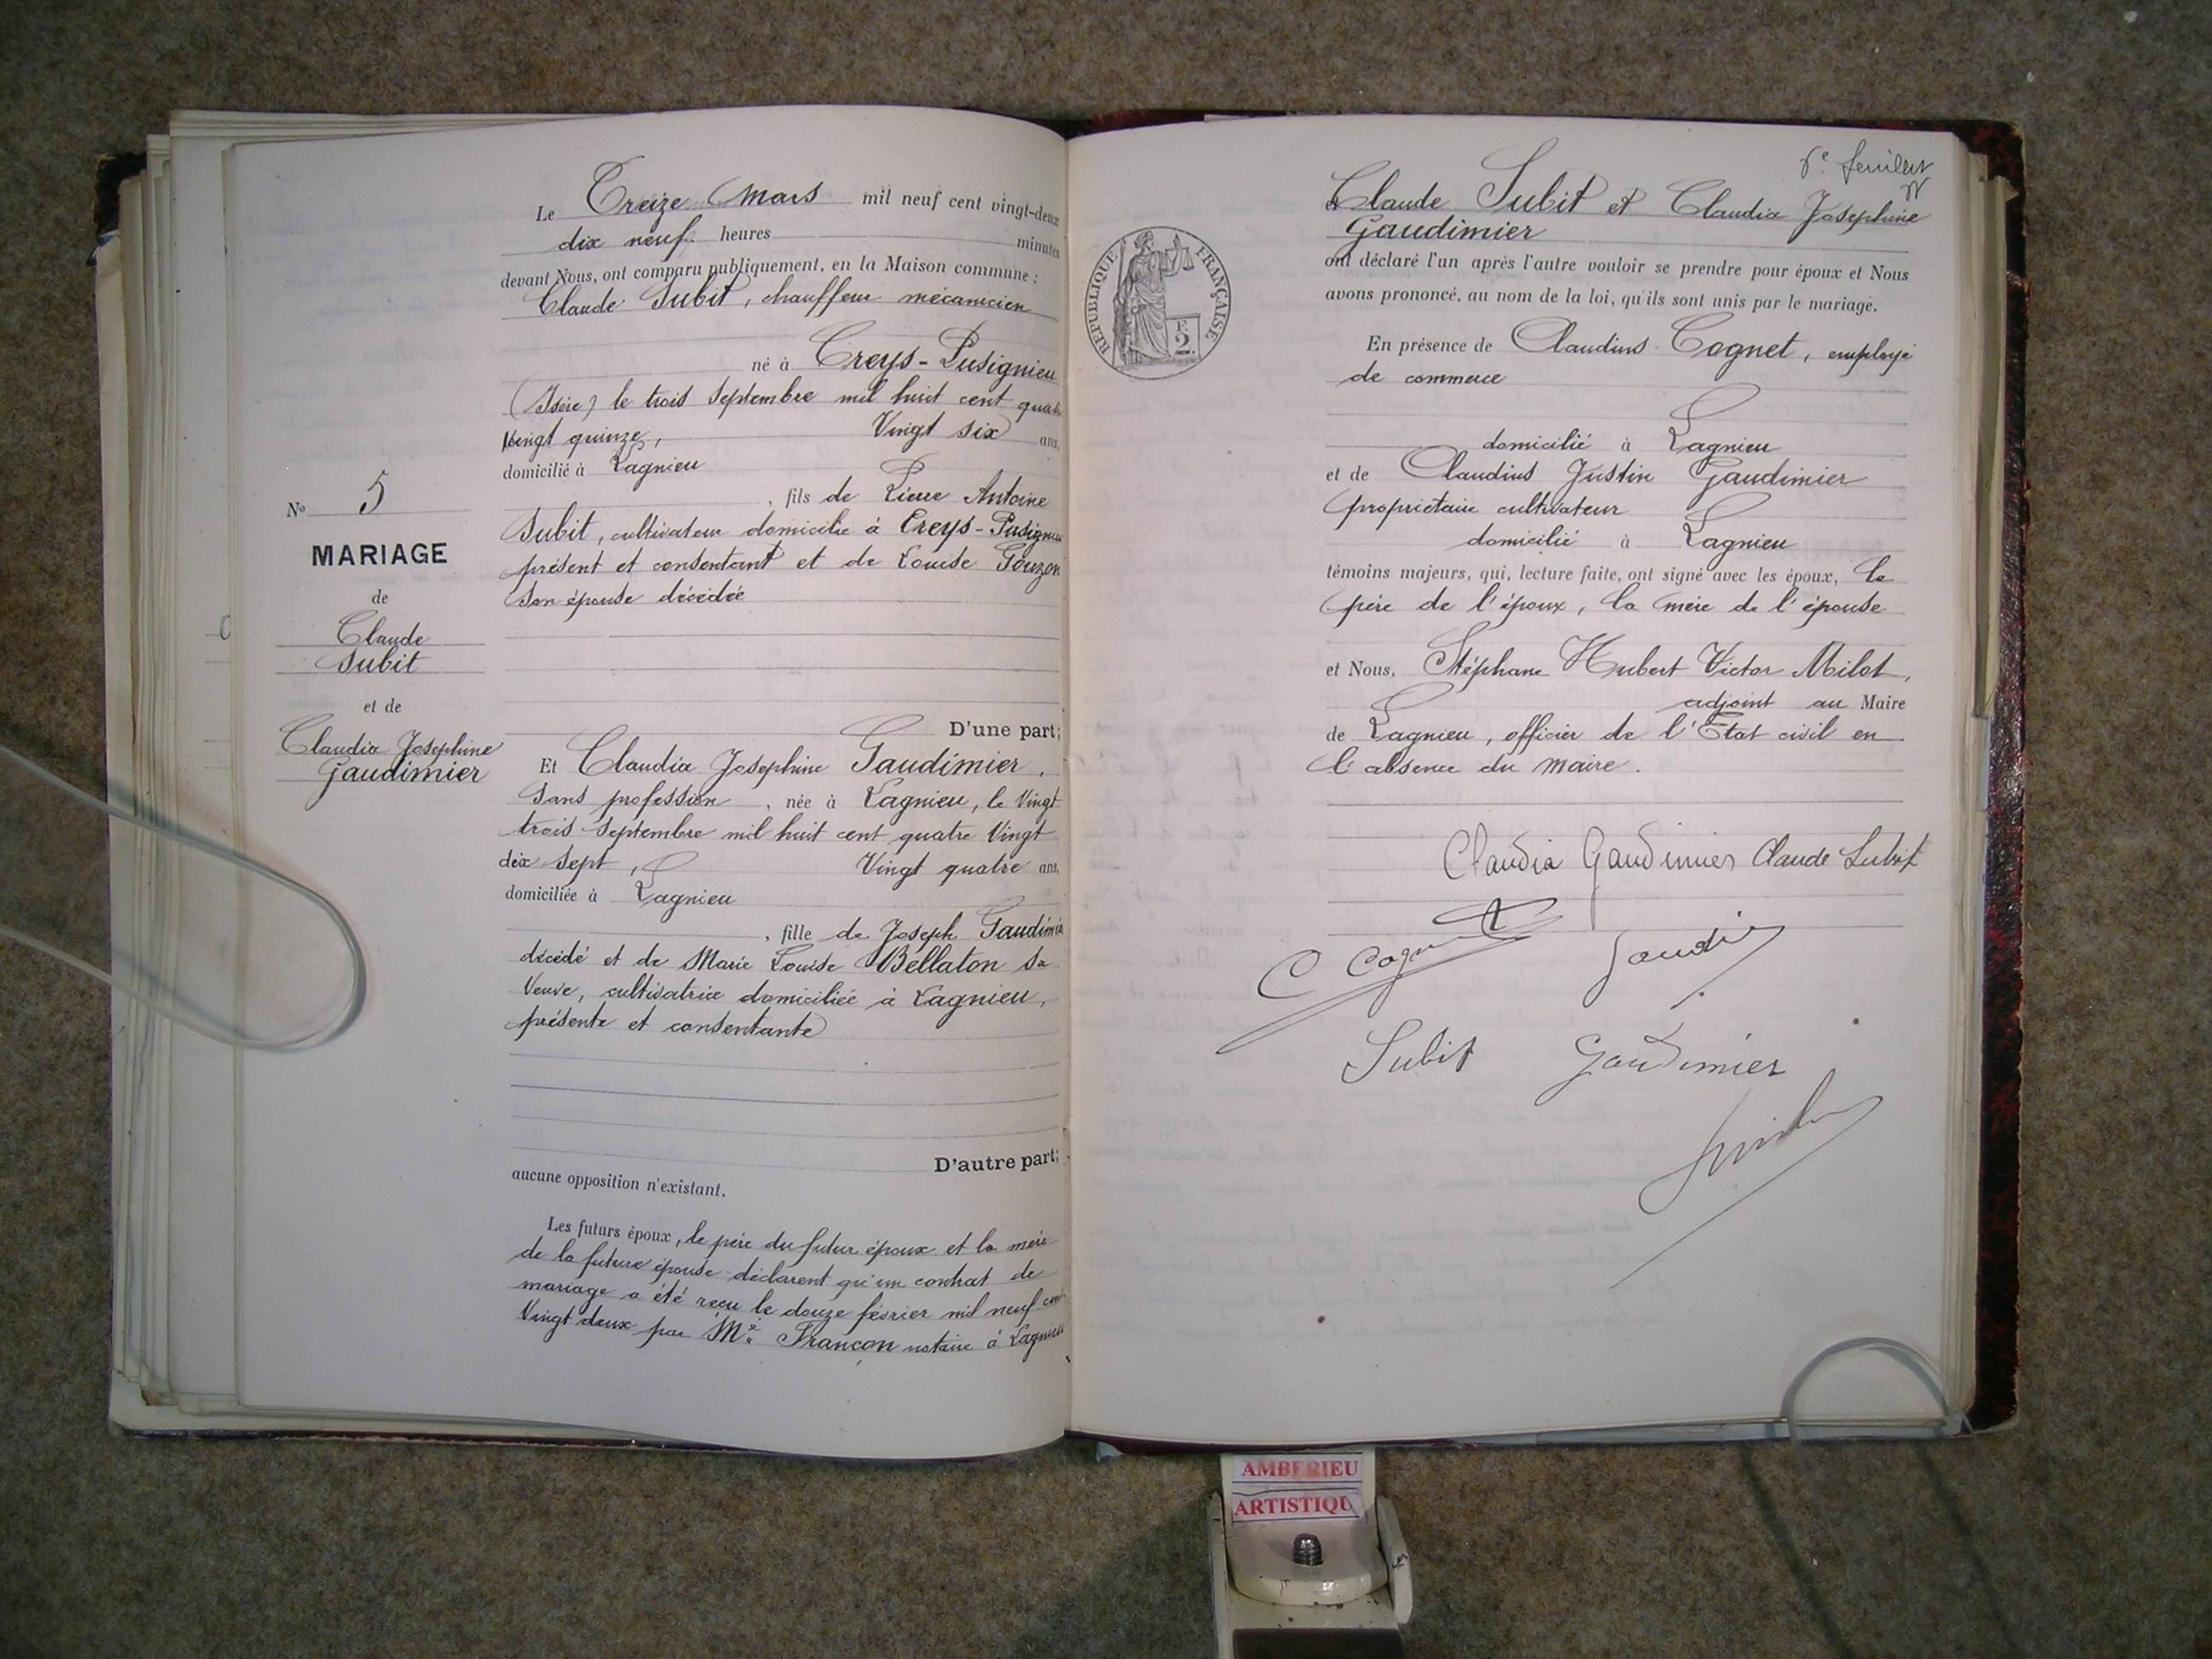 Le Treize Mars mil neuf cent vingt-deux
dix neuf heures minutes
devant Nous, ont comparu publiquement, en la Maison commune :
Claude Subit, chauffeur mécanicien
né à Creys-Pusignieu
(Isère) le trois Septembre mil huit cent quatre
Vingt quinze, Vingt six ans,
domicilié à Lagnieu
, fils de Pierre Antoine
Subit, cultivateur domicilié à Creys-Pusignieu
présent et consentant et de Louise Gouzon
Son épouse décédée
D'une part;
Et Claudia Josephine Gaudimier,
Sans profession, née à Lagnieu, le Vingt
trois Septembre mil huit cent quatre Vingt
dix Sept, Vingt quatre ans,
domiciliée à Lagnieu
, fille de Joseph Gaudimier
décédé et de Marie Louise Bellaton sa
Veuve, cultivatrice domiciliée à Lagnieu,
présente et consentante
D'autre part;
aucune opposition n'existant.
Les futurs époux, le père du futur époux et la mère
de la future épouse déclarent qu'un contrat de
mariage a été reçu le douze février mil neuf cent
Vingt deux par Me Francon notaire à Lagnieu
No 5
MARIAGE
de
Claude
Subit
et de
Claudia Josephine
Gaudimier
feuillet
RÉPUBLIQUE FRANÇAISE
2
Claude Subit et Claudia Josephine
Gaudimier
ont déclaré l'un après l'autre vouloir se prendre pour époux et Nous
avons prononcé, au nom de la loi, qu'ils sont unis par le mariage.
En présence de Claudius Cognet, employé
de commerce
domicilié à Lagnieu
et de Claudius Justin Gaudimier
propriétaire cultivateur
domicilié à Lagnieu
témoins majeurs, qui, lecture faite, ont signé avec les époux, le
père de l'époux, la mère de l'épouse
et Nous, Stéphane Hubert Victor Milot,
adjoint au Maire
de Lagnieu, officier de l'Etat civil en
l'absence du maire.
Claudia Gaudimier Claude Subit
C Cognet
Subit Gaudimier
AMBERIEU
ARTISTIQU